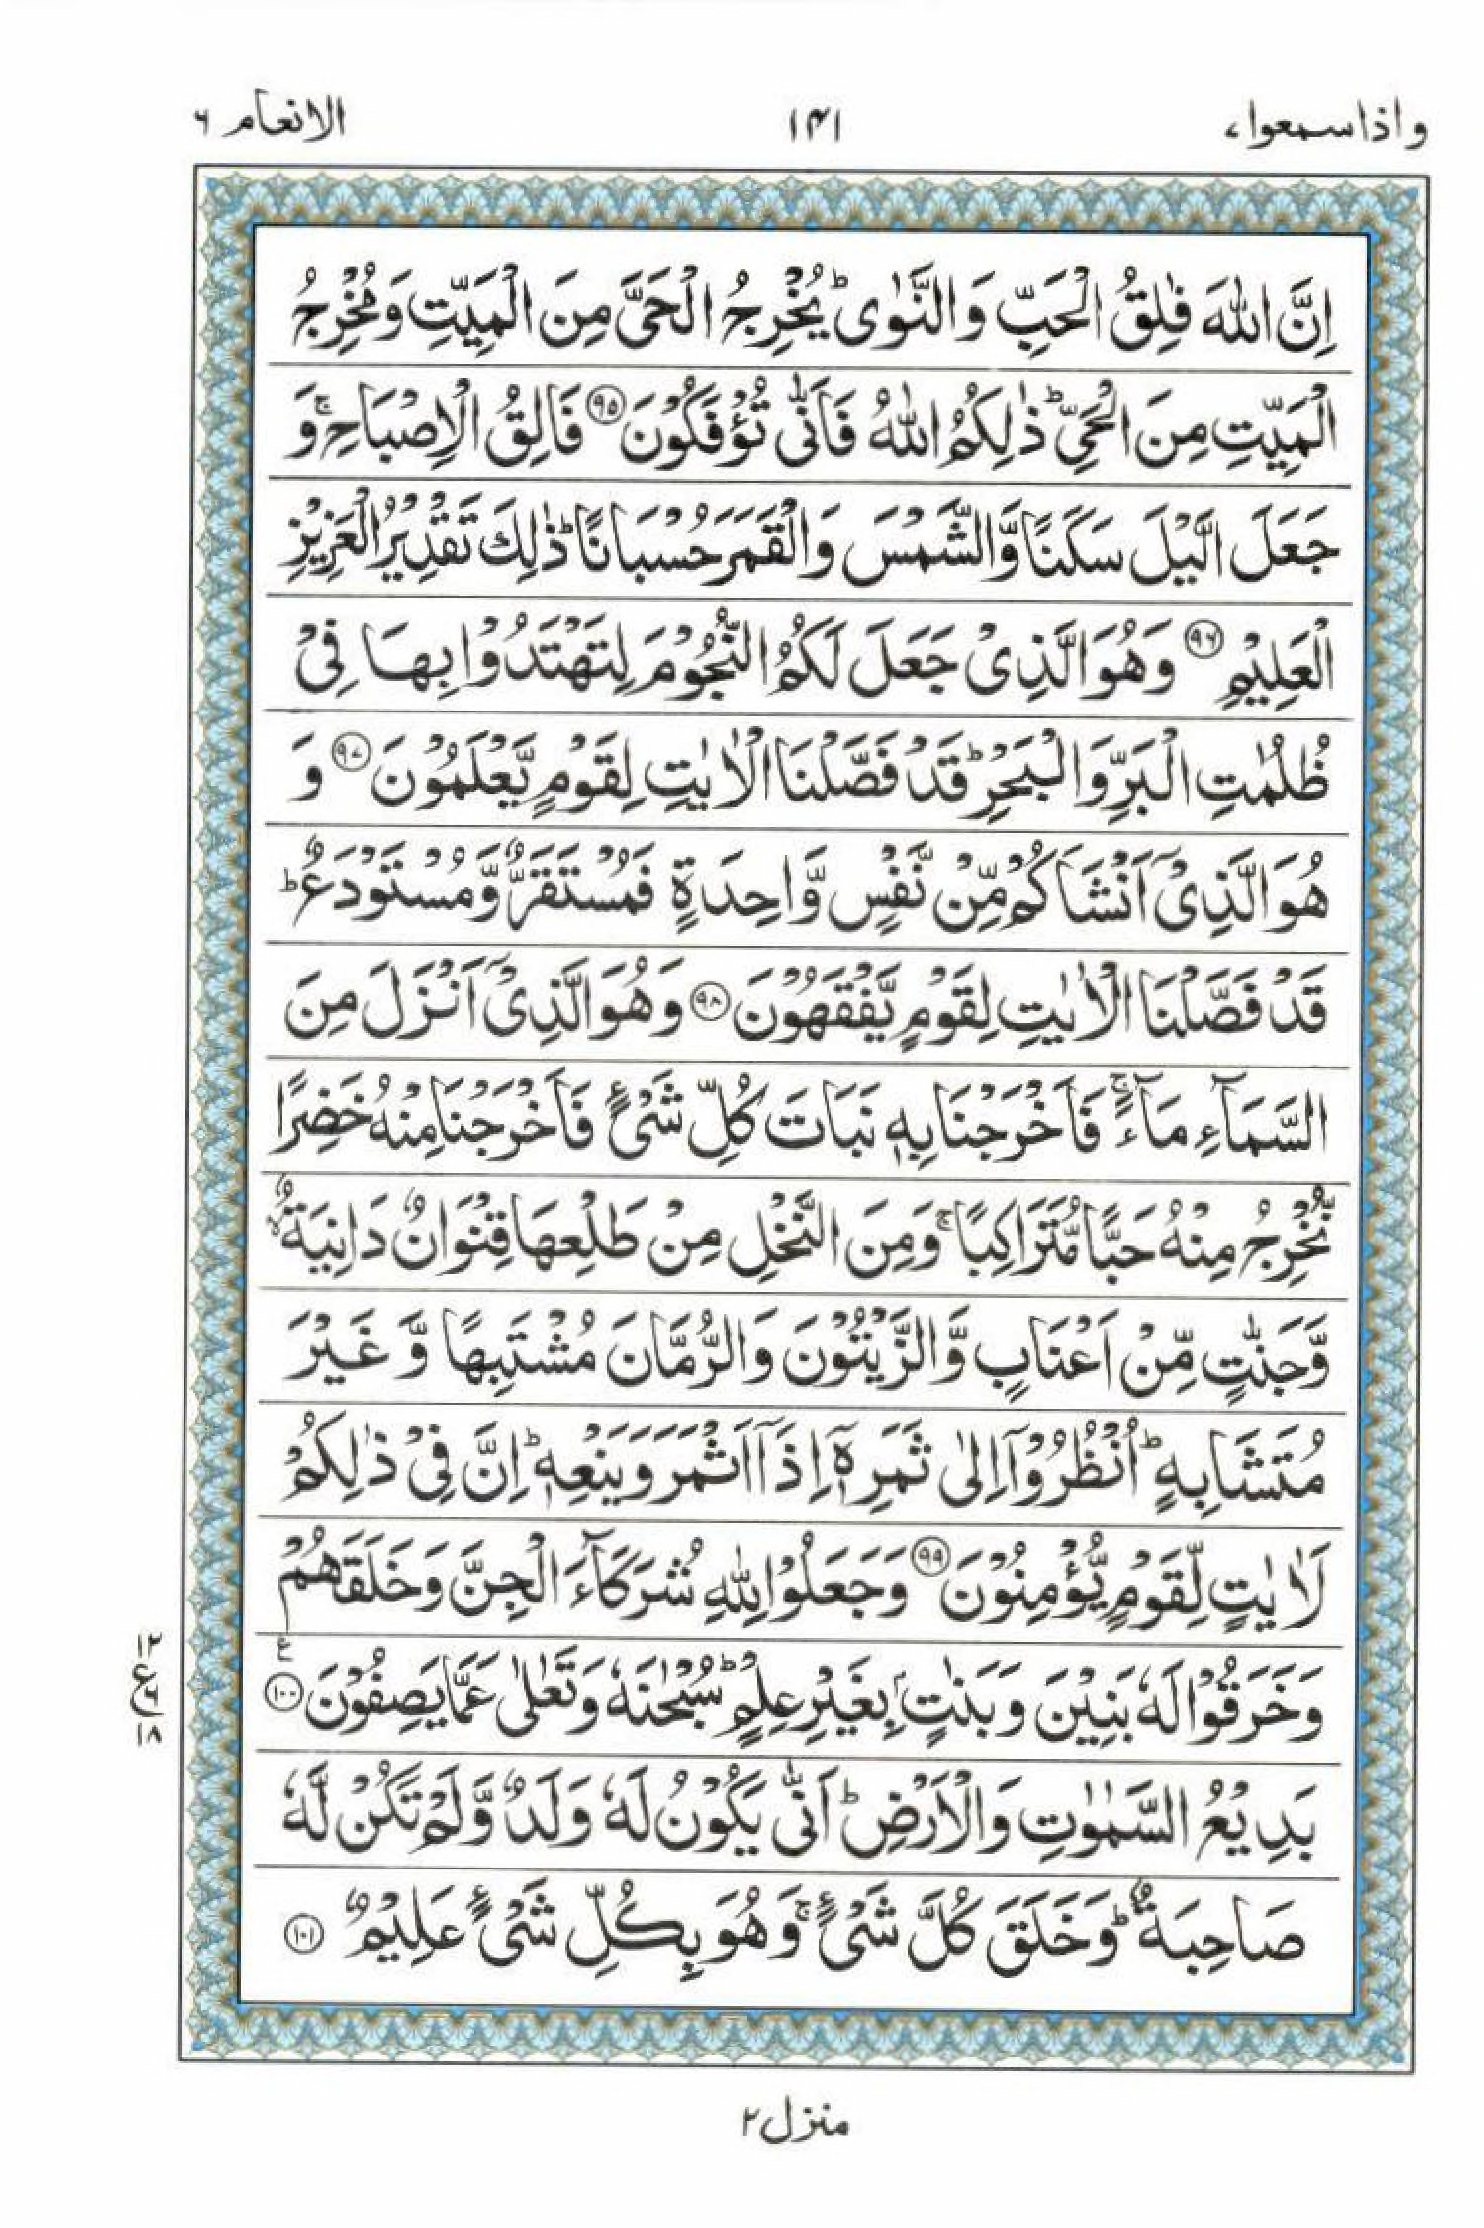 واذاسمعوا ٧ ١٤١ الانعام ٦
اِنَّ اللّٰهَ فٰلِقُ الْحَبِّ وَالنَّوٰىؕ يُخْرِجُ الْحَىَّ مِنَ الْمَيِّتِ وَمُخْرِجُ
الْمَيِّتِ مِنَ الْحَىِّؕ ذٰلِكُمُ اللّٰهُ فَاَنّٰى تُؤْفَكُوْنَ ﴿۹۵﴾ فَالِقُ الْاِصْبَاحِۚ وَ
جَعَلَ الَّيْلَ سَكَنًا وَّالشَّمْسَ وَالْقَمَرَ حُسْبَانًاؕ ذٰلِكَ تَقْدِيْرُ الْعَزِيْزِ
الْعَلِيْمِ ﴿۹۶﴾ وَهُوَ الَّذِىْ جَعَلَ لَكُمُ النُّجُوْمَ لِتَهْتَدُوْا بِهَا فِىْ
ظُلُمٰتِ الْبَرِّ وَالْبَحْرِؕ قَدْ فَصَّلْنَا الْاٰيٰتِ لِقَوْمٍ يَّعْلَمُوْنَ ﴿۹۷﴾ وَ
هُوَ الَّذِىْۤ اَنْشَاَكُمْ مِّنْ نَّفْسٍ وَّاحِدَةٍ فَمُسْتَقَرٌّ وَّمُسْتَوْدَعٌؕ
قَدْ فَصَّلْنَا الْاٰيٰتِ لِقَوْمٍ يَّفْقَهُوْنَ ﴿۹۸﴾ وَهُوَ الَّذِىْۤ اَنْزَلَ مِنَ
السَّمَآءِ مَآءًۚ فَاَخْرَجْنَا بِهٖ نَبَاتَ كُلِّ شَىْءٍ فَاَخْرَجْنَا مِنْهُ خَضِرًا
نُّخْرِجُ مِنْهُ حَبًّا مُّتَرَاكِبًاۚ وَمِنَ النَّخْلِ مِنْ طَلْعِهَا قِنْوَانٌ دَانِيَةٌۙ
وَّجَنّٰتٍ مِّنْ اَعْنَابٍ وَّالزَّيْتُوْنَ وَالرُّمَّانَ مُشْتَبِهًا وَّغَيْرَ
مُتَشَابِهٍؕ اُنْظُرُوْۤا اِلٰى ثَمَرِهٖۤ اِذَاۤ اَثْمَرَ وَيَنْعِهٖؕ اِنَّ فِىْ ذٰلِكُمْ
لَاٰيٰتٍ لِّقَوْمٍ يُّؤْمِنُوْنَ ﴿۹۹﴾ وَجَعَلُوْا لِلّٰهِ شُرَكَآءَ الْجِنَّ وَخَلَقَهُمْ
وَخَرَقُوْا لَهٗ بَنِيْنَ وَبَنٰتٍۭ بِغَيْرِ عِلْمٍؕ سُبْحٰنَهٗ وَتَعٰلٰى عَمَّا يَصِفُوْنَ ﴿۱۰۰﴾ ع
١٢ ع ٦ ١٨
بَدِيْعُ السَّمٰوٰتِ وَالْاَرْضِؕ اَنّٰى يَكُوْنُ لَهٗ وَلَدٌ وَّلَمْ تَكُنْ لَّهٗ
صَاحِبَةٌؕ وَخَلَقَ كُلَّ شَىْءٍۚ وَهُوَ بِكُلِّ شَىْءٍ عَلِيْمٌ ﴿۱۰۱﴾
منزل ٢